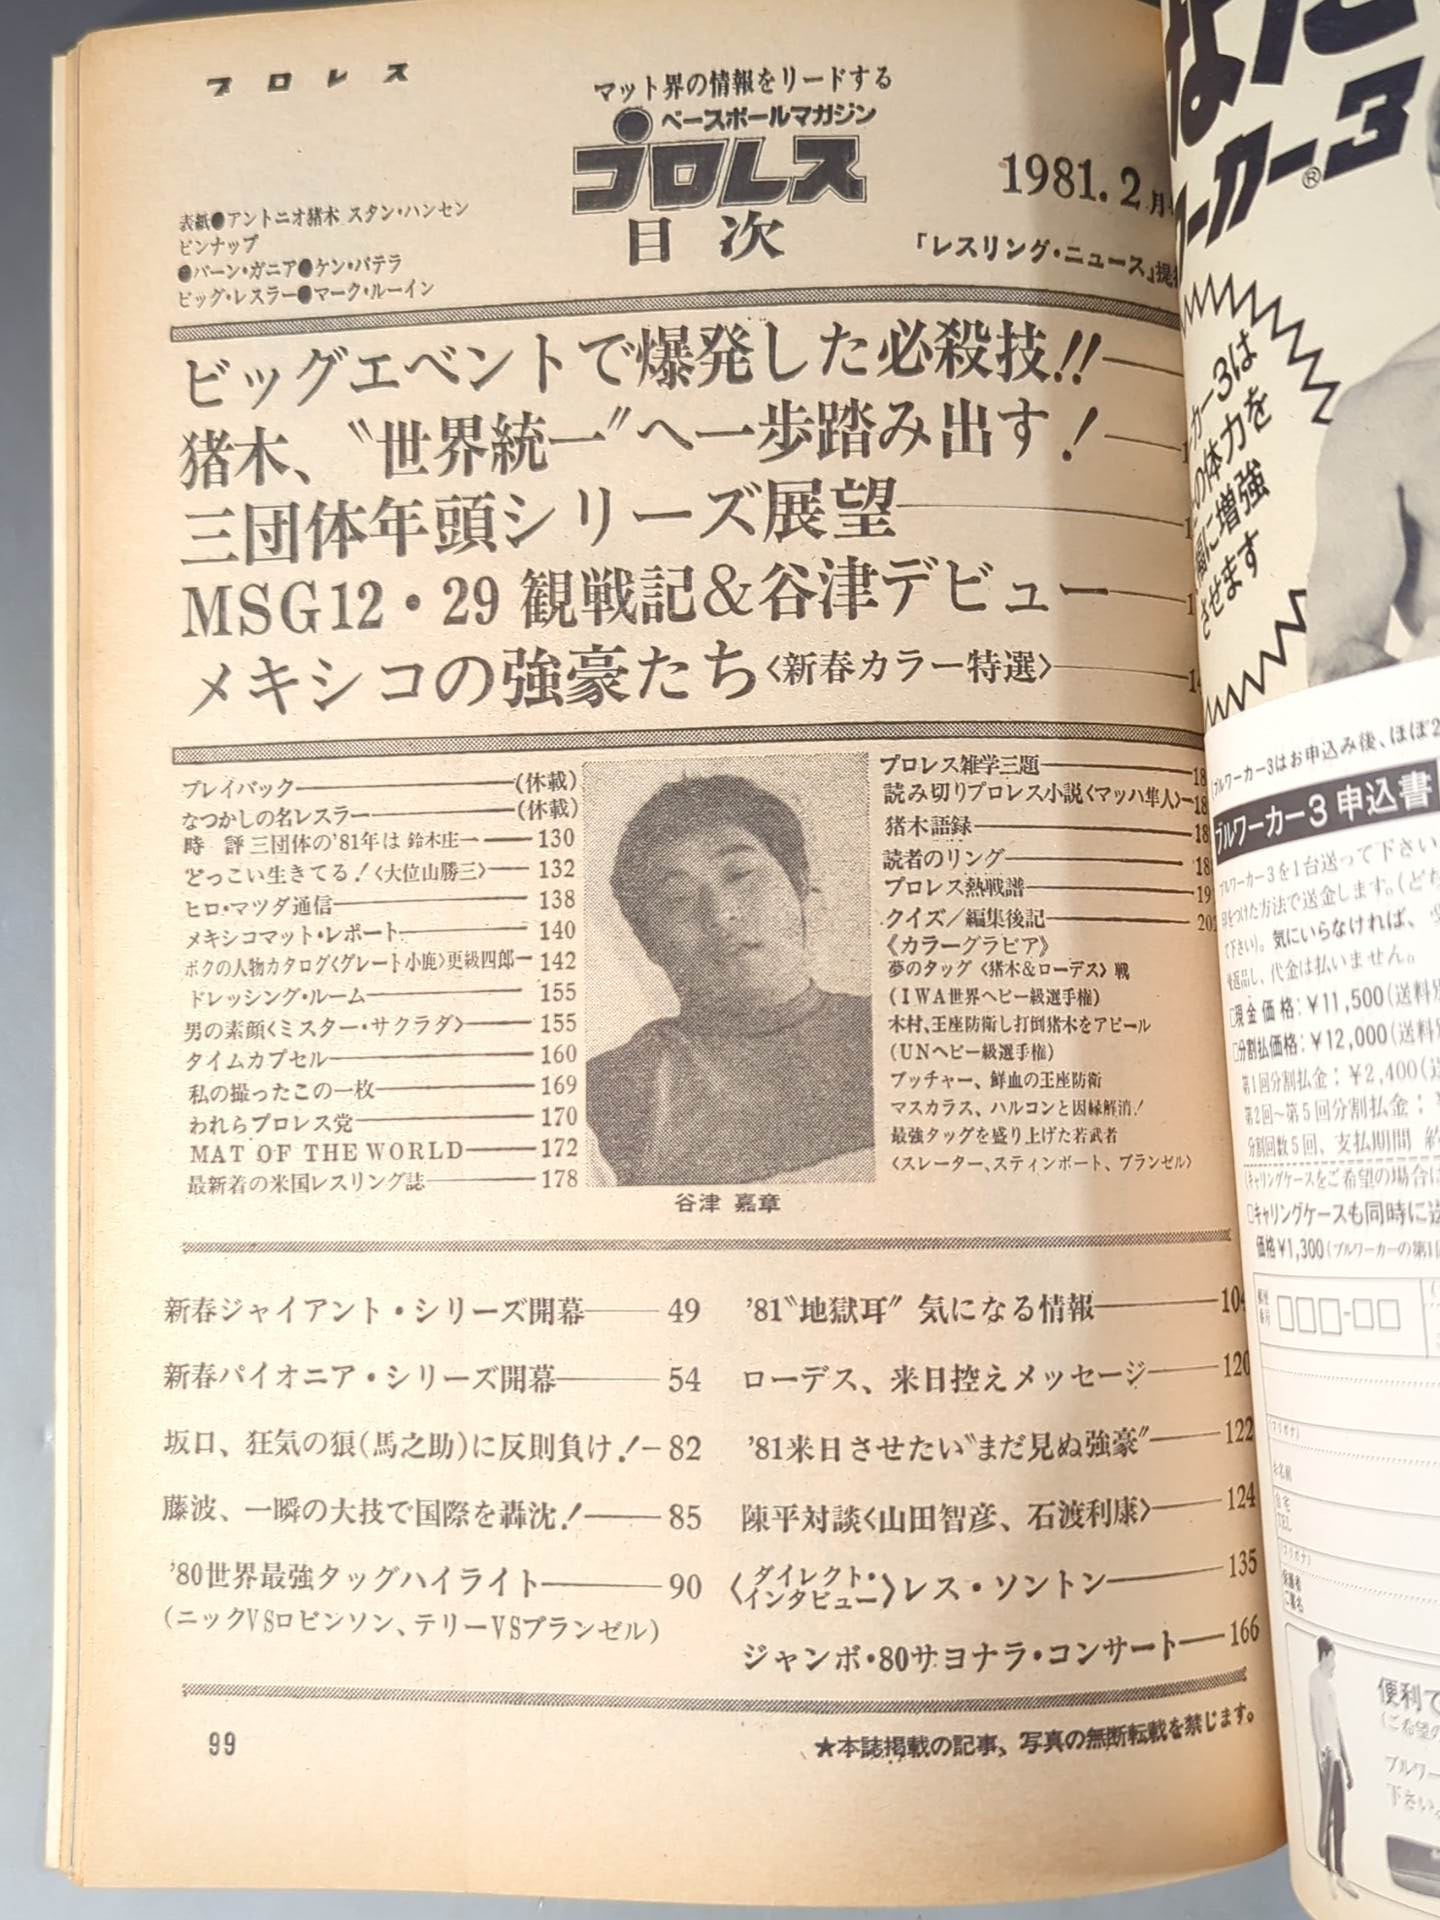 プロレス
マット界の情報をリードする
ベースボールマガジン
プロレス
目次
1981.2月
「レスリング・ニュース」提
表紙●アントニオ猪木 スタン・ハンセン
ピンナップ
●バーン・ガニア●ケン・パテラ
ビッグ・レスラー●マーク・ルーイン
ビッグエベントで爆発した必殺技!!
猪木、〝世界統一〟へ一歩踏み出す!
三団体年頭シリーズ展望
MSG12・29 観戦記&谷津デビュー
メキシコの強豪たち〈新春カラー特選〉
プレイバック――(休載)
なつかしの名レスラー――(休載)
時 評 三団体の'81年は 鈴木庄一――130
どっこい生きてる!〈大位山勝三〉――132
ヒロ・マツダ通信――138
メキシコマット・レポート――140
ボクの人物カタログ〈グレート小鹿〉更級四郎――142
ドレッシング・ルーム――155
男の素顔〈ミスター・サクラダ〉――155
タイムカプセル――160
私の撮ったこの一枚――169
われらプロレス党――170
MAT OF THE WORLD――172
最新着の米国レスリング誌――178
谷津 嘉章
プロレス雑学三題
読み切りプロレス小説〈マッハ隼人〉
猪木語録
読者のリング
プロレス熱戦譜
クイズ/編集後記
《カラーグラビア》
夢のタッグ〈猪木&ローデス〉戦
(IWA世界ヘビー級選手権)
木村、王座防衛し打倒猪木をアピール
(UNヘビー級選手権)
ブッチャー、鮮血の王座防衛
マスカラス、ハルコンと因縁解消!
最強タッグを盛り上げた若武者
〈スレーター、スティンボート、ブランゼル〉
新春ジャイアント・シリーズ開幕――49
新春パイオニア・シリーズ開幕――54
坂口、狂気の狼(馬之助)に反則負け!――82
藤波、一瞬の大技で国際を轟沈!――85
'80世界最強タッグハイライト――90
(ニックVSロビンソン、テリーVSブランゼル)
'81〝地獄耳〟気になる情報――104
ローデス、来日控えメッセージ――120
'81来日させたい〝まだ見ぬ強豪〟――122
陳平対談〈山田智彦、石渡利康〉――124
〈ダイレクト・インタビュー〉レス・ソントン――135
ジャンボ・80サヨナラ・コンサート――166
99
★本誌掲載の記事、写真の無断転載を禁じます。
なた
ワーカー3®
カー3は
の体力を
間に増強
させます
ブルワーカー3はお申込み後、ほぼ2
ブルワーカー3 申込書
ブルワーカー3を1台送って下さい
印をつけた方法で送金します。(どち
て下さい)。気にいらなければ、
返品し、代金は払いません。
□現金価格:¥11,500(送料別
□分割払価格:¥12,000(送料
第1回分割払金:¥2,400(送
第2回~第5回分割払金:
分割回数5回、支払期間 約
(キャリングケースをご希望の場合は
□キャリングケースも同時に送
価格¥1,300(ブルワーカーの第1回
(フリガナ)
お名前
自宅
TEL
(フリガナ)
保護者
ご署名
便利で
(ご希望の
ブルワー
下さい。